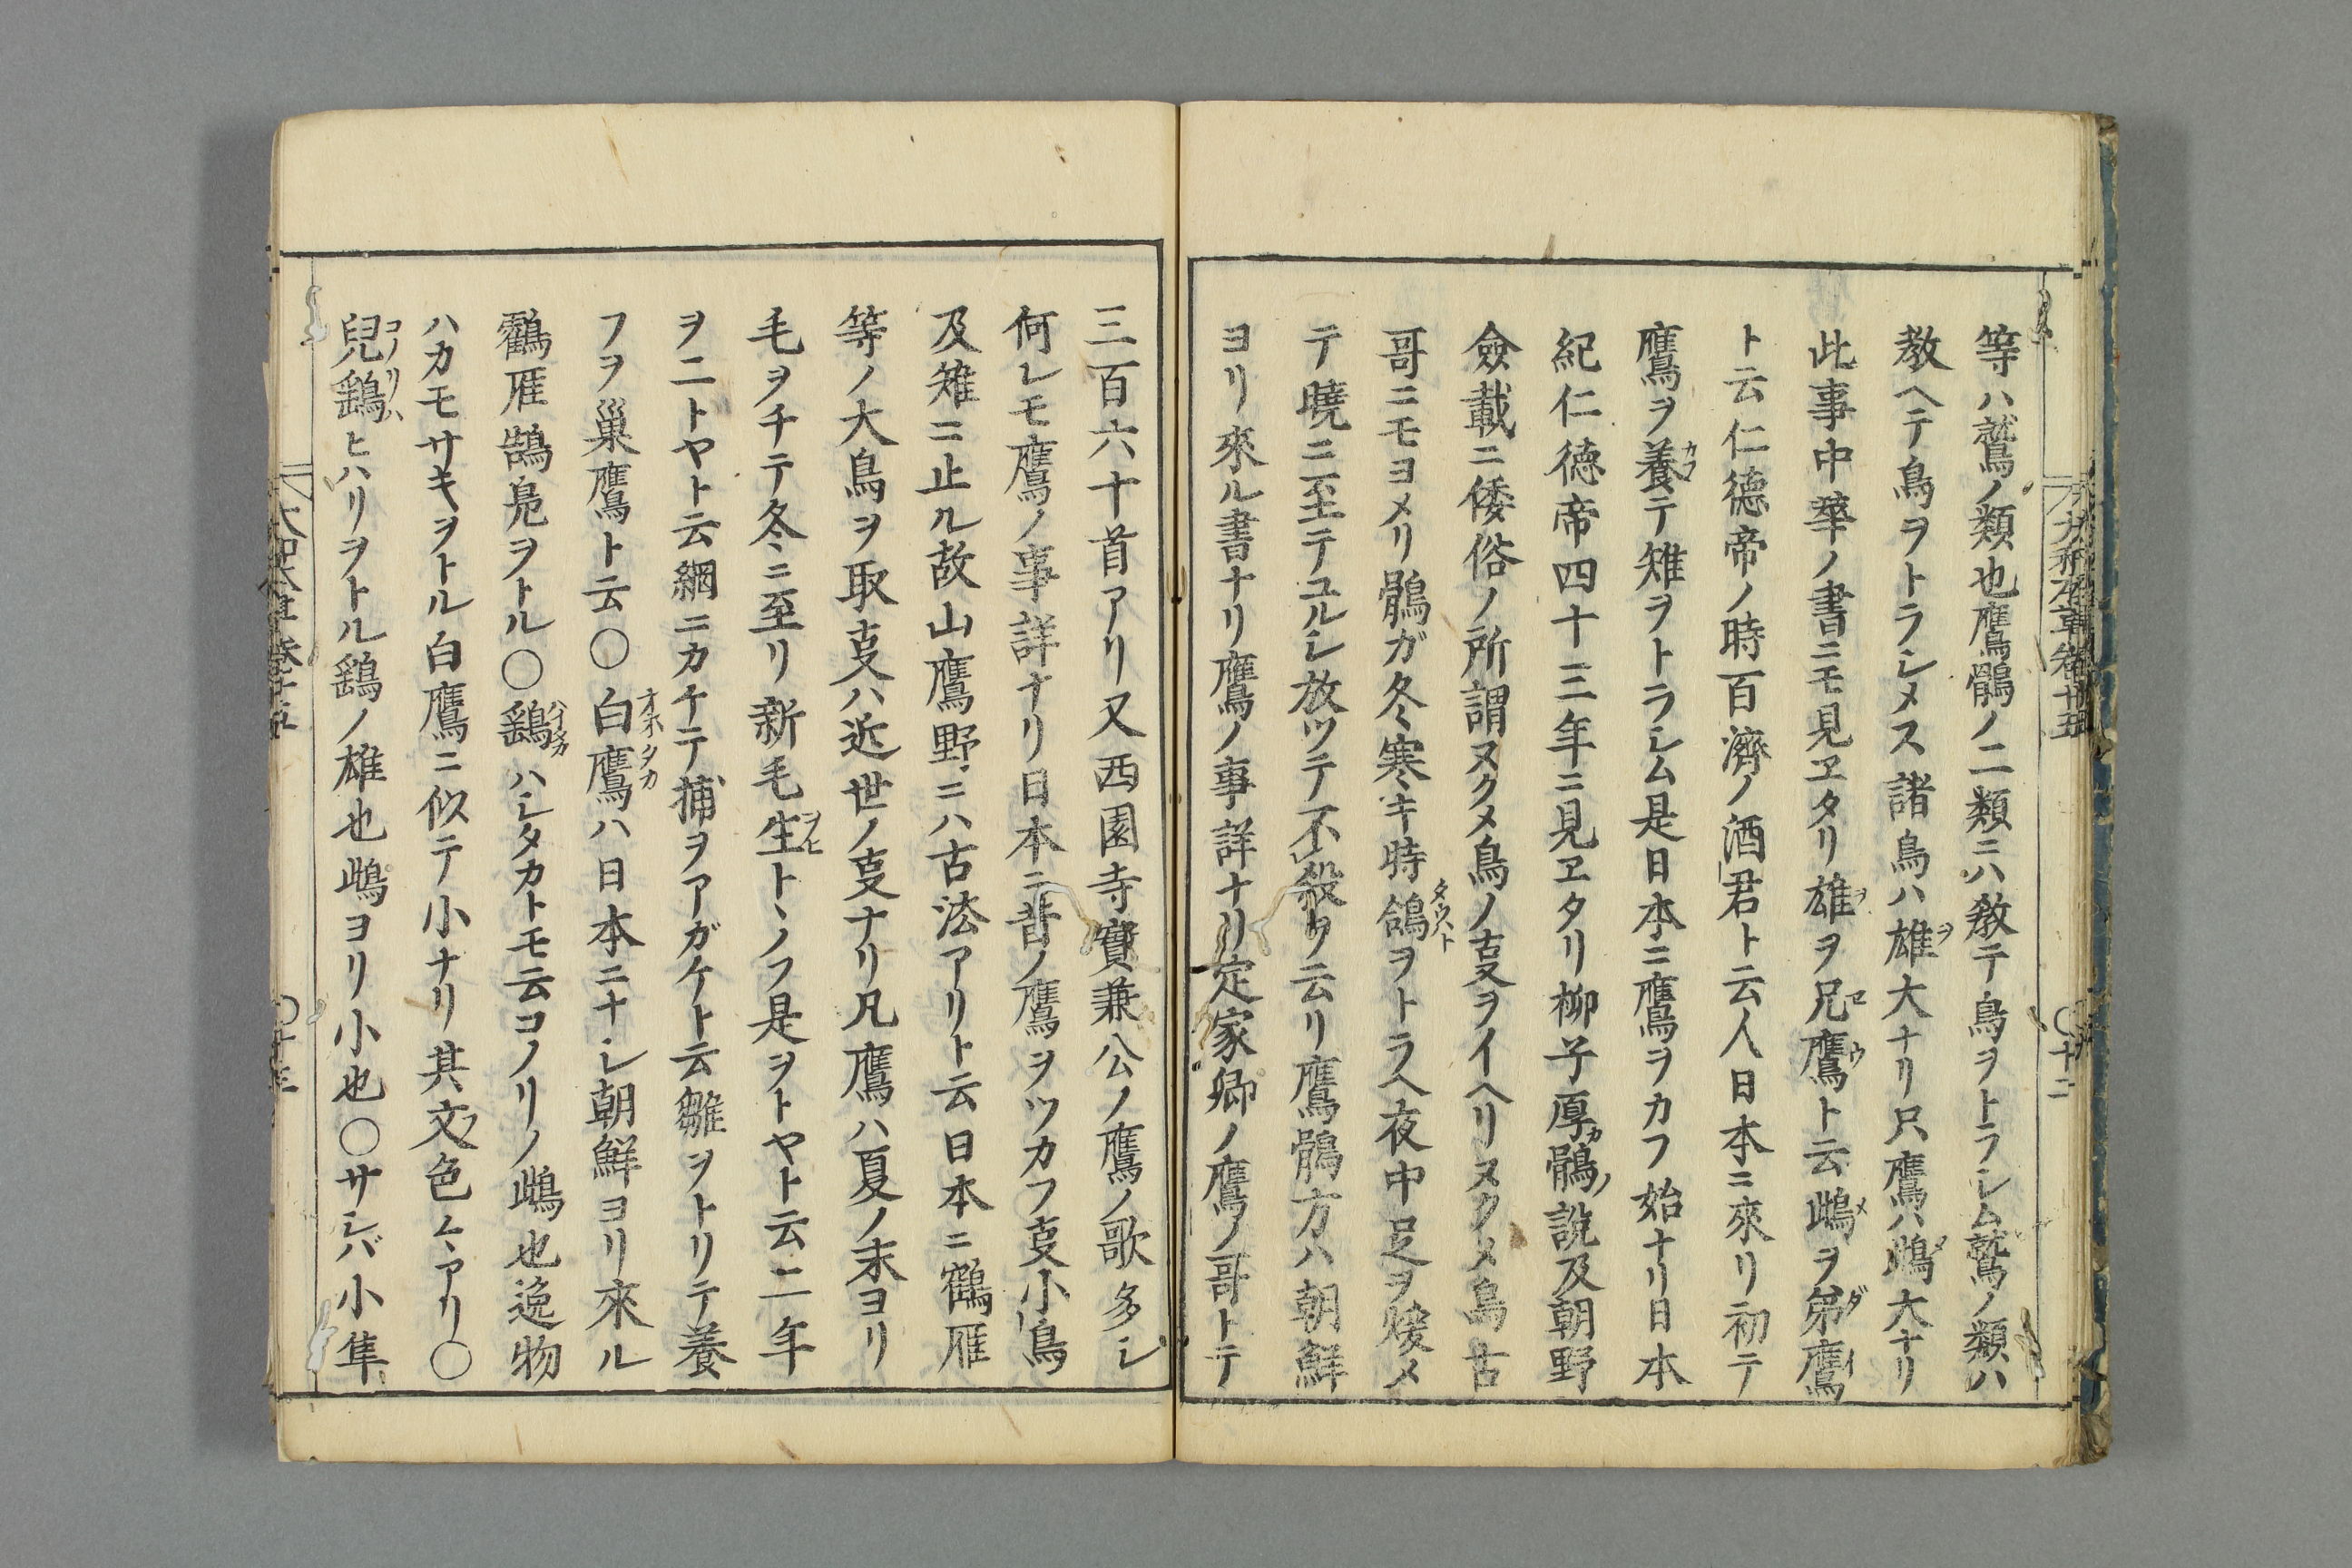 等ハ鷲ノ類也鷹鶻ノ二類ニハ教テ鳥ヲトラシム鷲ノ類ハ
教ヘテ鳥ヲトラシメス諸鳥ハ雄大ナリ只鷹ハ鴟大ナリ
此事中華ノ書ニモ見ヱタリ雄ヲ兄鷹ト云鴟ヲ弟鷹
ト云仁德帝ノ時百濟ノ酒君ト云人日本ニ來リ初テ
鷹ヲ養テ雉ヲトラシム是日本ニ鷹ヲカフ始ナリ日本
紀仁德帝四十三年ニ見ヱタリ柳子厚カ鶻ノ說及朝野
僉載ニ倭俗ノ所謂ヌクメ鳥ノ叓ヲイヘリヌクメ鳥古
哥ニモヨメリ鶻ガ冬寒キ時鴿ヲトラヘ夜中足ヲ煖メ
テ曉ニ至テユルシ放ツテ不殺ト云リ鷹鶻方ハ朝鮮
ヨリ來ル書ナリ鷹ノ事詳ナリ定家卿ノ鷹ノ哥トテ
大和本草卷十五
〇十二
三百六十首アリ又西園寺寶兼公ノ鷹ノ歌多シ
何レモ鷹ノ事詳ナリ日本ニ昔ノ鷹ヲツカフ叓小鳥
及雉ニ止ル故山鷹野ニハ古法アリト云日本ニ鶴雁
等ノ大鳥ヲ取叓ハ近世ノ叓ナリ凡鷹ハ夏ノ末ヨリ
毛ヲチテ冬ニ至リ新毛生トヽノフ是ヲトヤト云二年
ヲ二トヤト云網ニカヂテ捕ヲアガケト云雛ヲトリテ養
フヲ巢鷹ト云〇白鷹ハ日本ニナシ朝鮮ヨリ來ル
鸛雁鵠鳧ヲトル〇鷂ハシタカトモ云コノリノ鴟也逸物
ハカモサギヲトル白鷹ニ似テ小ナリ其文色々アリ〇
兒鷂ヒハリヲトル鷂ノ雄也鴟ヨリ小也〇サシバ小隼
大和本草卷十五
〇十三